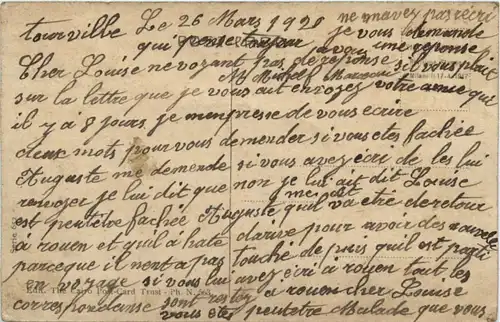 tourville Le 26 Mars 1921
ne mavez pas écri
je vous demande
qui pense
une reponse
Cher Louise ne voyant pas de reponse
sil vous plais
sur la lettre que je vous ait envoyez votre amie qui
il y a 8 jours je mempresse de vous ecrire
deux mots pour vous demender si vous etes fachée
Auguste me demende si vous avez écri de les lui
renvoyer je lui dit que non je lui ait dit Louise
est peutetre fachée Auguste qu'il va etre de retour
a rouen et quil a hate davoir pour avoir des nouvelle
parceque il nent a pas touché de puis quil est parti
en voyage si vous lui avez écri a rouen tout les
correspondanse sont restez a rouen cher Louise
vous etes peutetre Malade que vous